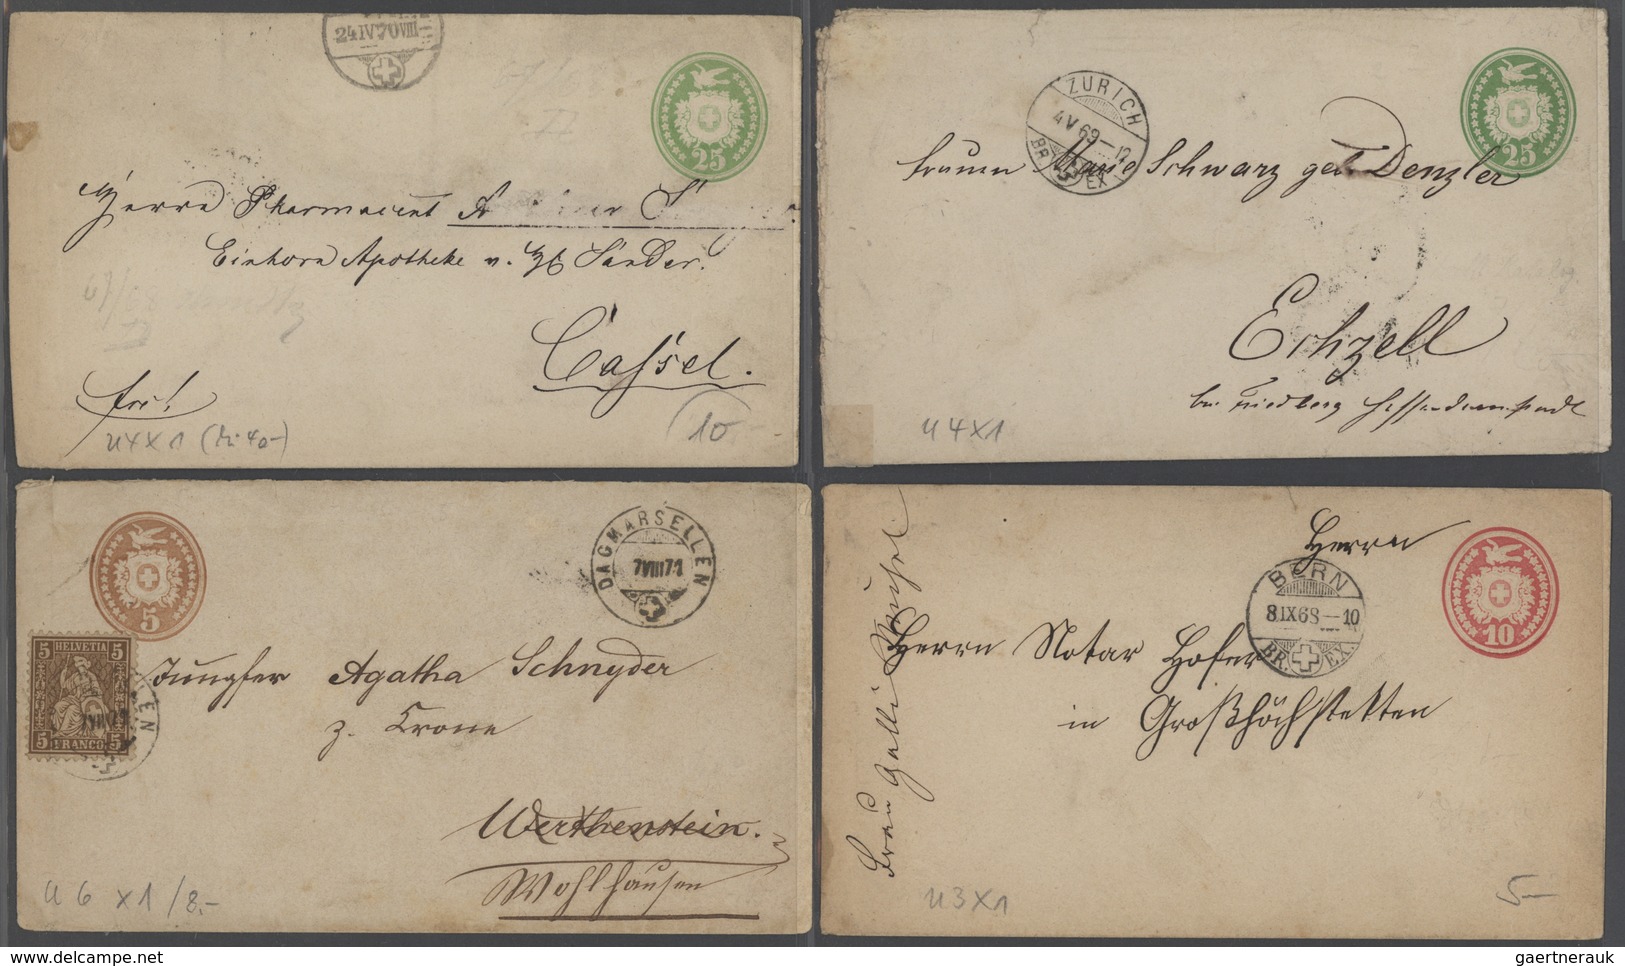 24 IV 70 VIII
25
Herrn Pharmaceut A
Einhorn Apotheke v. Sander.
Cassel.
frei!
U4X1 (Mi 40-)
10
ZURICH
4 V 69 — 12
BR. EX
25
Frauen Marie Schwarz geb. Denzler
Echzell
bei Friedberg Hessendarmstadt
U4X1
5
DAGMARSELLEN
7 VIII 71
5 HELVETIA 5
5 FRANCO 5
7 VIII 71
Jungfer Agatha Schnyder
z. Krone
Werthenstein.
Wohlhausen
U6 X1 /8.-
Herrn
10
BERN
8 IX 68 — 10
BR. EX.
Herrn Notar Hofer
in Großhöchstetten
Frau Galli
U3X1
5—
www.delcampe.net
gaertnerauk